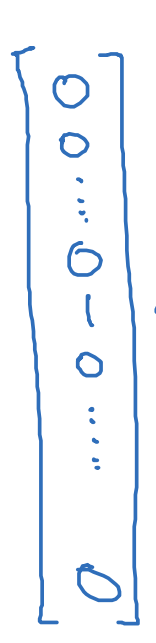 [ 0
0
⋮
0
1
0
⋮
0 ]